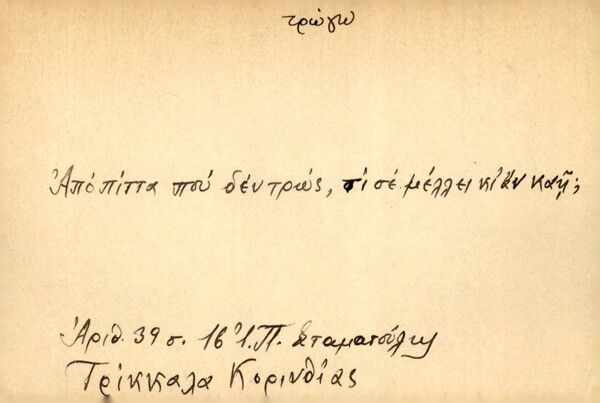 τρώγω
Ἀπό πίττα πού δέν τρῶς, τί σέ μέλλει κι ἄν καῇ;
Ἀριθ. 39 σ. 16 Ἰ. Π. Σταματούλης
Τρίκκαλα Κορινθίας